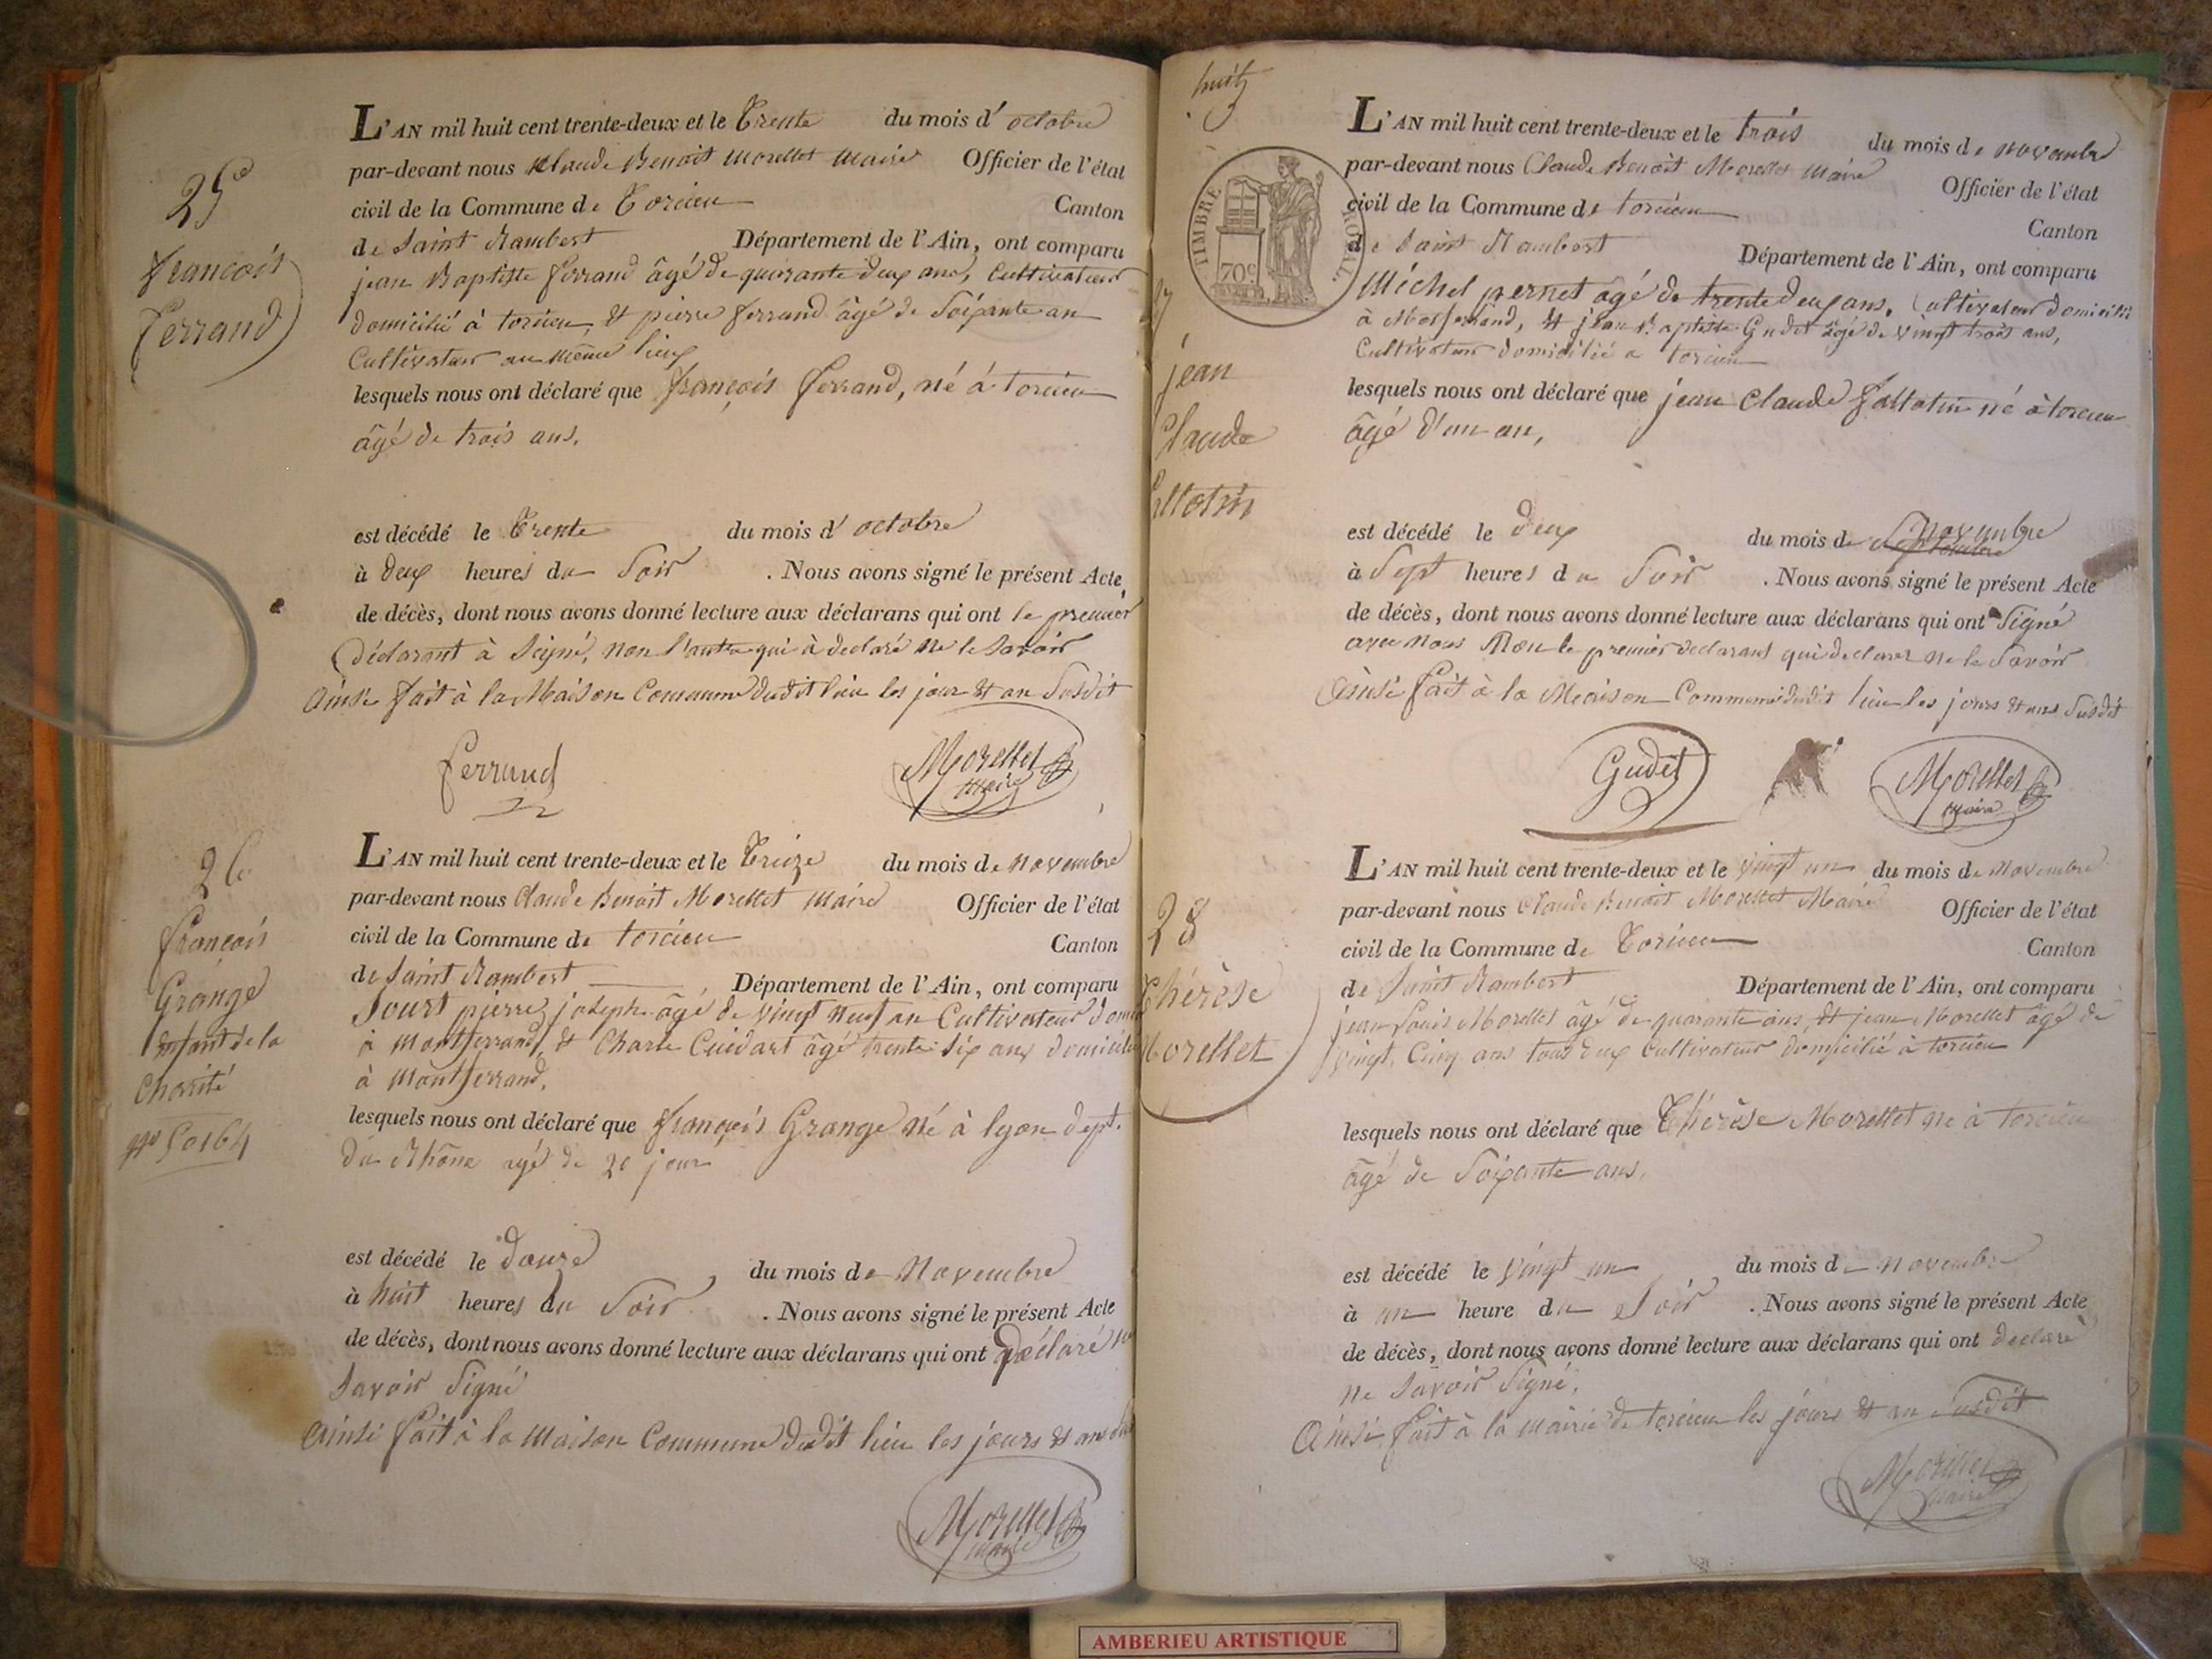 25e
François
Ferrand
L'AN mil huit cent trente-deux et le Trente du mois d' octobre
par-devant nous Claude Benoit Morellet Maire Officier de l'état
civil de la Commune de Torcieu Canton
de Saint Rambert Département de l'Ain, ont comparu
jean Baptiste ferrand âgé de quarante deux ans, Cultivateur
domicilié à torcieu, et pierre ferrand âgé de Soixante an
Cultivateur au même lieu
lesquels nous ont déclaré que françois ferrand, né à torcieu
âgé de trois ans.
est décédé le Trente du mois d' octobre
à deux heures du Soir . Nous avons signé le présent Acte,
de décès, dont nous avons donné lecture aux déclarans qui ont le premier
déclarant à Seigné, non l'autre qui à declaré ne le Savoir
Ainsi fait à la Maison Commune dudit lieu les jour et an Susdit
ferrand
Morellet
maire
26
françois
Grange
enfant de la
Charité
no 50164
L'AN mil huit cent trente-deux et le Treize du mois de novembre
par-devant nous Claude Benoit Morellet Maire Officier de l'état
civil de la Commune de torcieu Canton
de Saint Rambert Département de l'Ain, ont comparu
pierre joseph âgé de vingt neuf an Cultivateur
à Montferrand, et Charle Cuidart âgé trente six ans domicilié
à Montferrand,
lesquels nous ont déclaré que françois Grange né à lyon dept.
du Rhône agé de 20 jour
est décédé le douze du mois de Novembre
à huit heures du Soir . Nous avons signé le présent Acte
de décès, dont nous avons donné lecture aux déclarans qui ont déclaré ne
Savoir Signé
Ainsi fait à la Maison Commune dudit lieu les jours et an
Morellet
maire
huit
TIMBRE ROYAL
70c
jean
Claude
L'AN mil huit cent trente-deux et le trois du mois de novembre
par-devant nous Claude Benoit Morellet Maire Officier de l'état
civil de la Commune de torcieu Canton
de Saint Rambert Département de l'Ain, ont comparu
Michel pernet âgé de trente deux ans, Cultivateur domicilié
à, et jean Baptiste Gudet âgé de vingt trois ans,
Cultivateur domicilié a torcieu
lesquels nous ont déclaré que jean Claude né à torcieu
âgé d'un an,
est décédé le deux du mois de Septembre Novembre
à Sept heures du Soir . Nous avons signé le présent Acte
de décès, dont nous avons donné lecture aux déclarans qui ont Signé
avec nous Non le premier declarant qui declarer ne le Savoir
Ainsi fait à la Maison Commune dudit lieu les jours et ans Susdit
Gudet
Morellet
Maire
28
Thérèse
Morellet
L'AN mil huit cent trente-deux et le vingt un du mois de Novembre
par-devant nous Claude Benoit Morellet Maire Officier de l'état
civil de la Commune de Torcieu Canton
de Saint Rambert Département de l'Ain, ont comparu
jean Louis Morellet âgé de quarante ans, et jean Morellet âgé de
vingt Cinq ans tous deux Cultivateur domicilié à torcieu
lesquels nous ont déclaré que Thérèse Morellet né à torcieu
âgé de Soixante ans,
est décédé le vingt un du mois de novembre
à un heure du Soir . Nous avons signé le présent Acte
de décès, dont nous avons donné lecture aux déclarans qui ont declaré
ne Savoir Signé,
Ainsi fait à la Mairie de torcieu les jours et an Susdit
Morellet
maire
AMBERIEU ARTISTIQUE